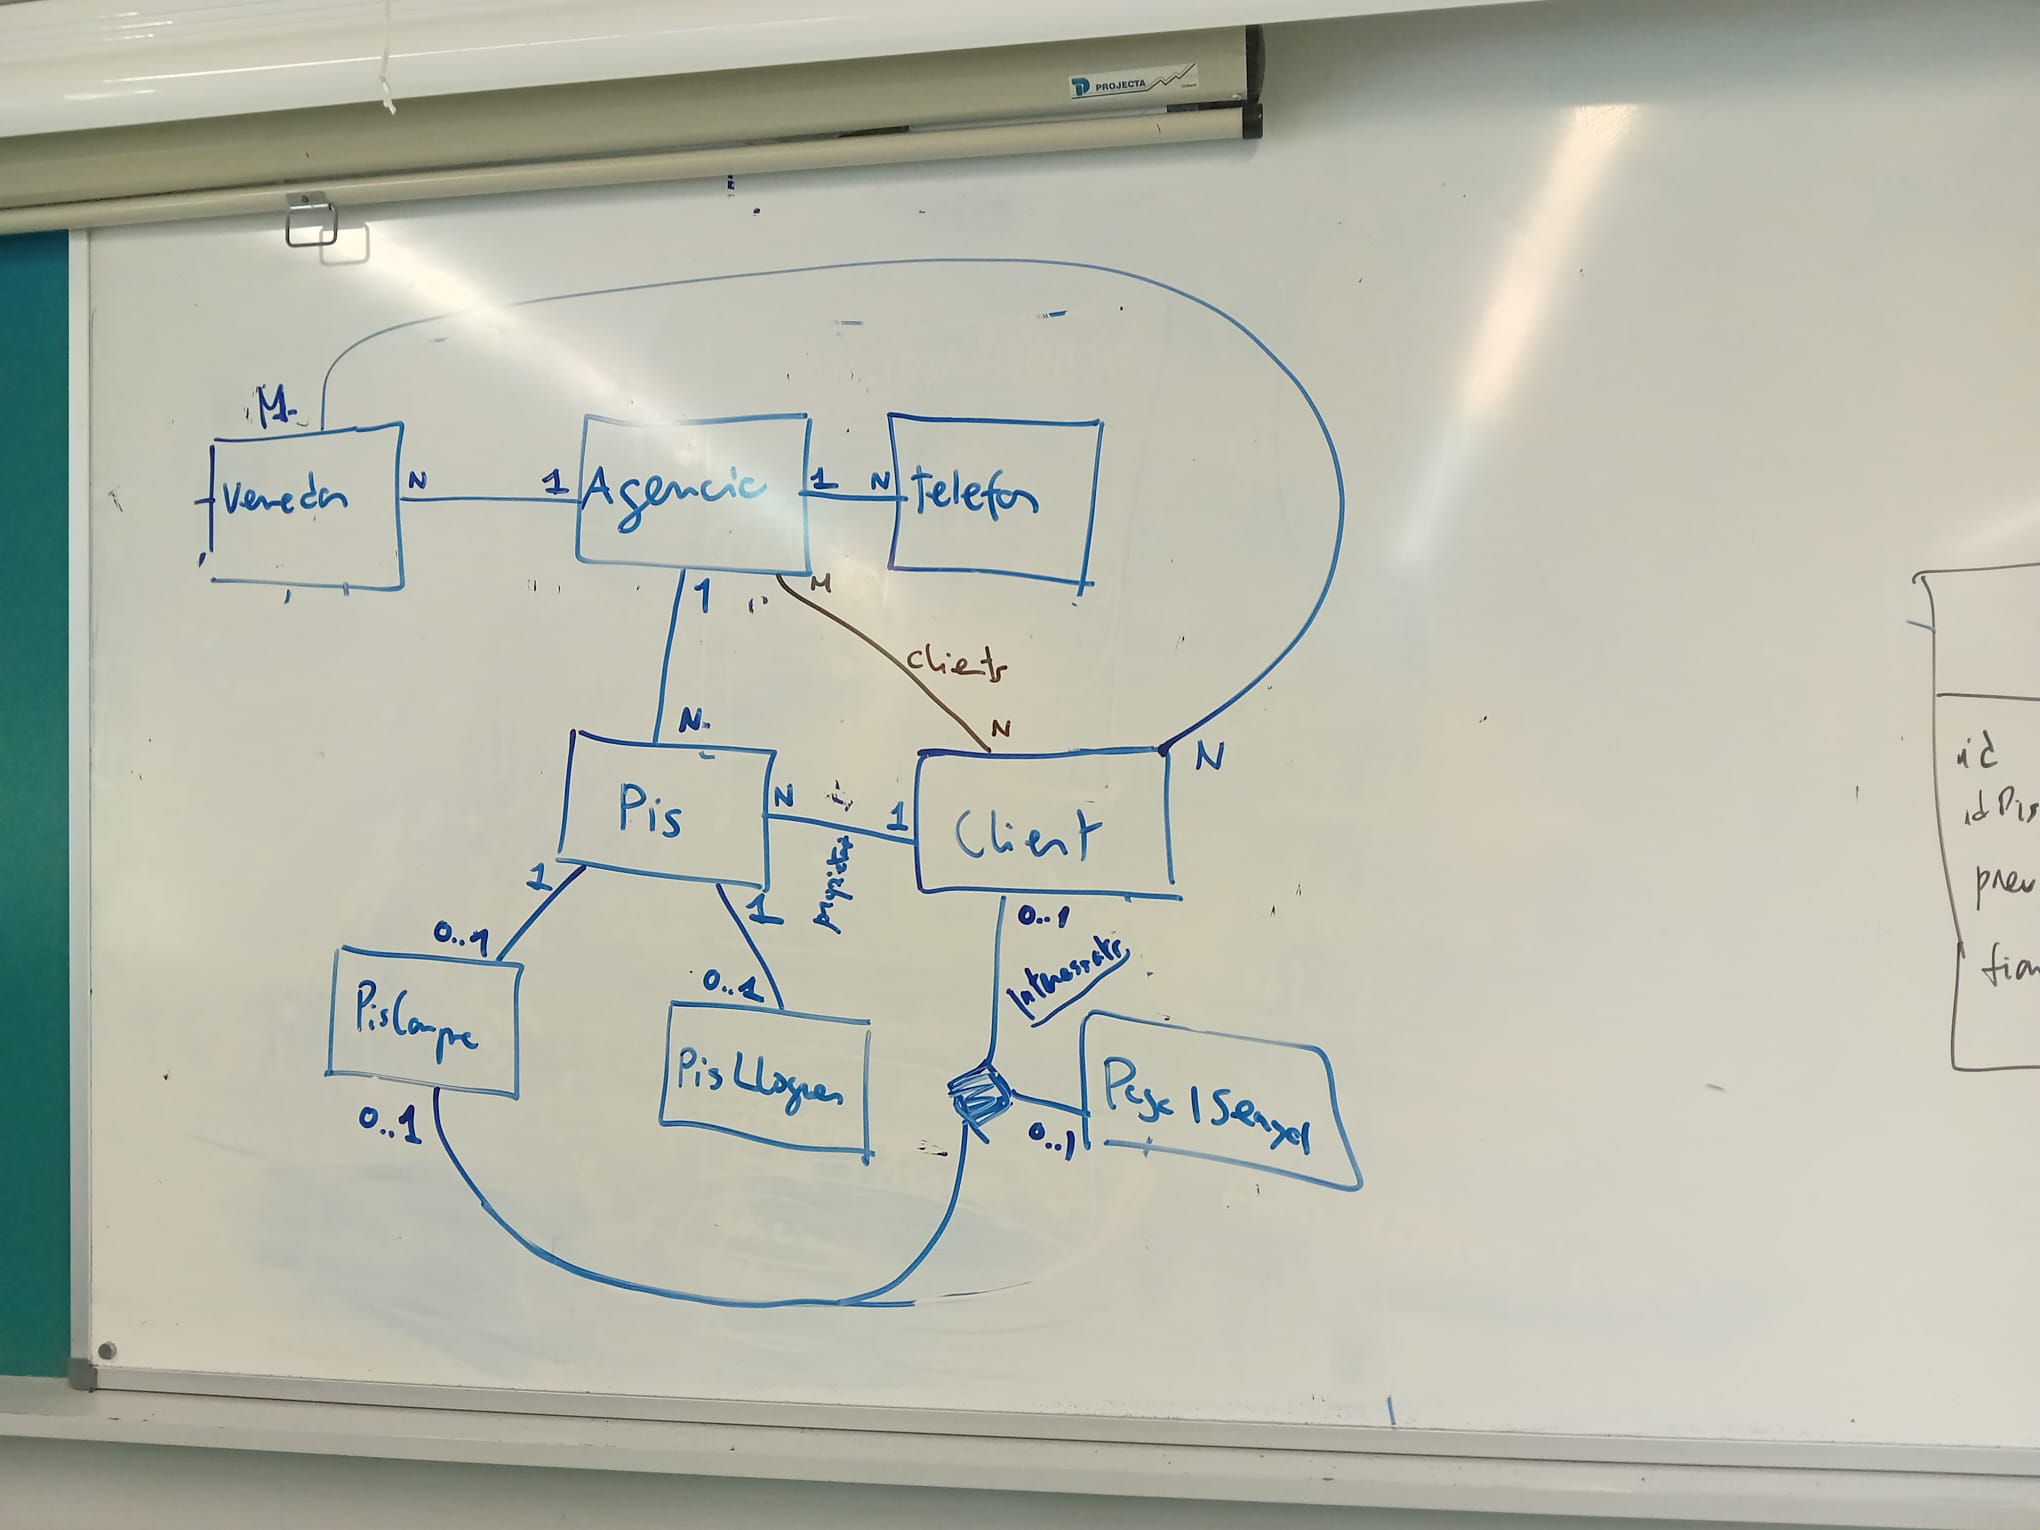 PROJECTA
M
Venedor
N
1
Agencia
1
N
Telefon
1
M
clients
N
N
N
Pis
N
1
propietari
Client
1
1
0..1
0..1
0..1
Interessats
PisCompra
PisLloguer
Paga I Senyal
0..1
0..1
id
idPis
preu